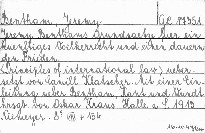 Bentham, Jeremy
Jeremy Benthams Grundsätze für ein
künftiges Völkerrecht und einen dauern-
den Frieden.
(Principles of international law) ueber-
setzt von Camill Klatscher. Mit einer Ein-
leitung ueber Bentham, Kant und Wundt
hrsgb. von Oskar Kraus Halle a. S. 1915
Niemeyer. 8° VI, + 154